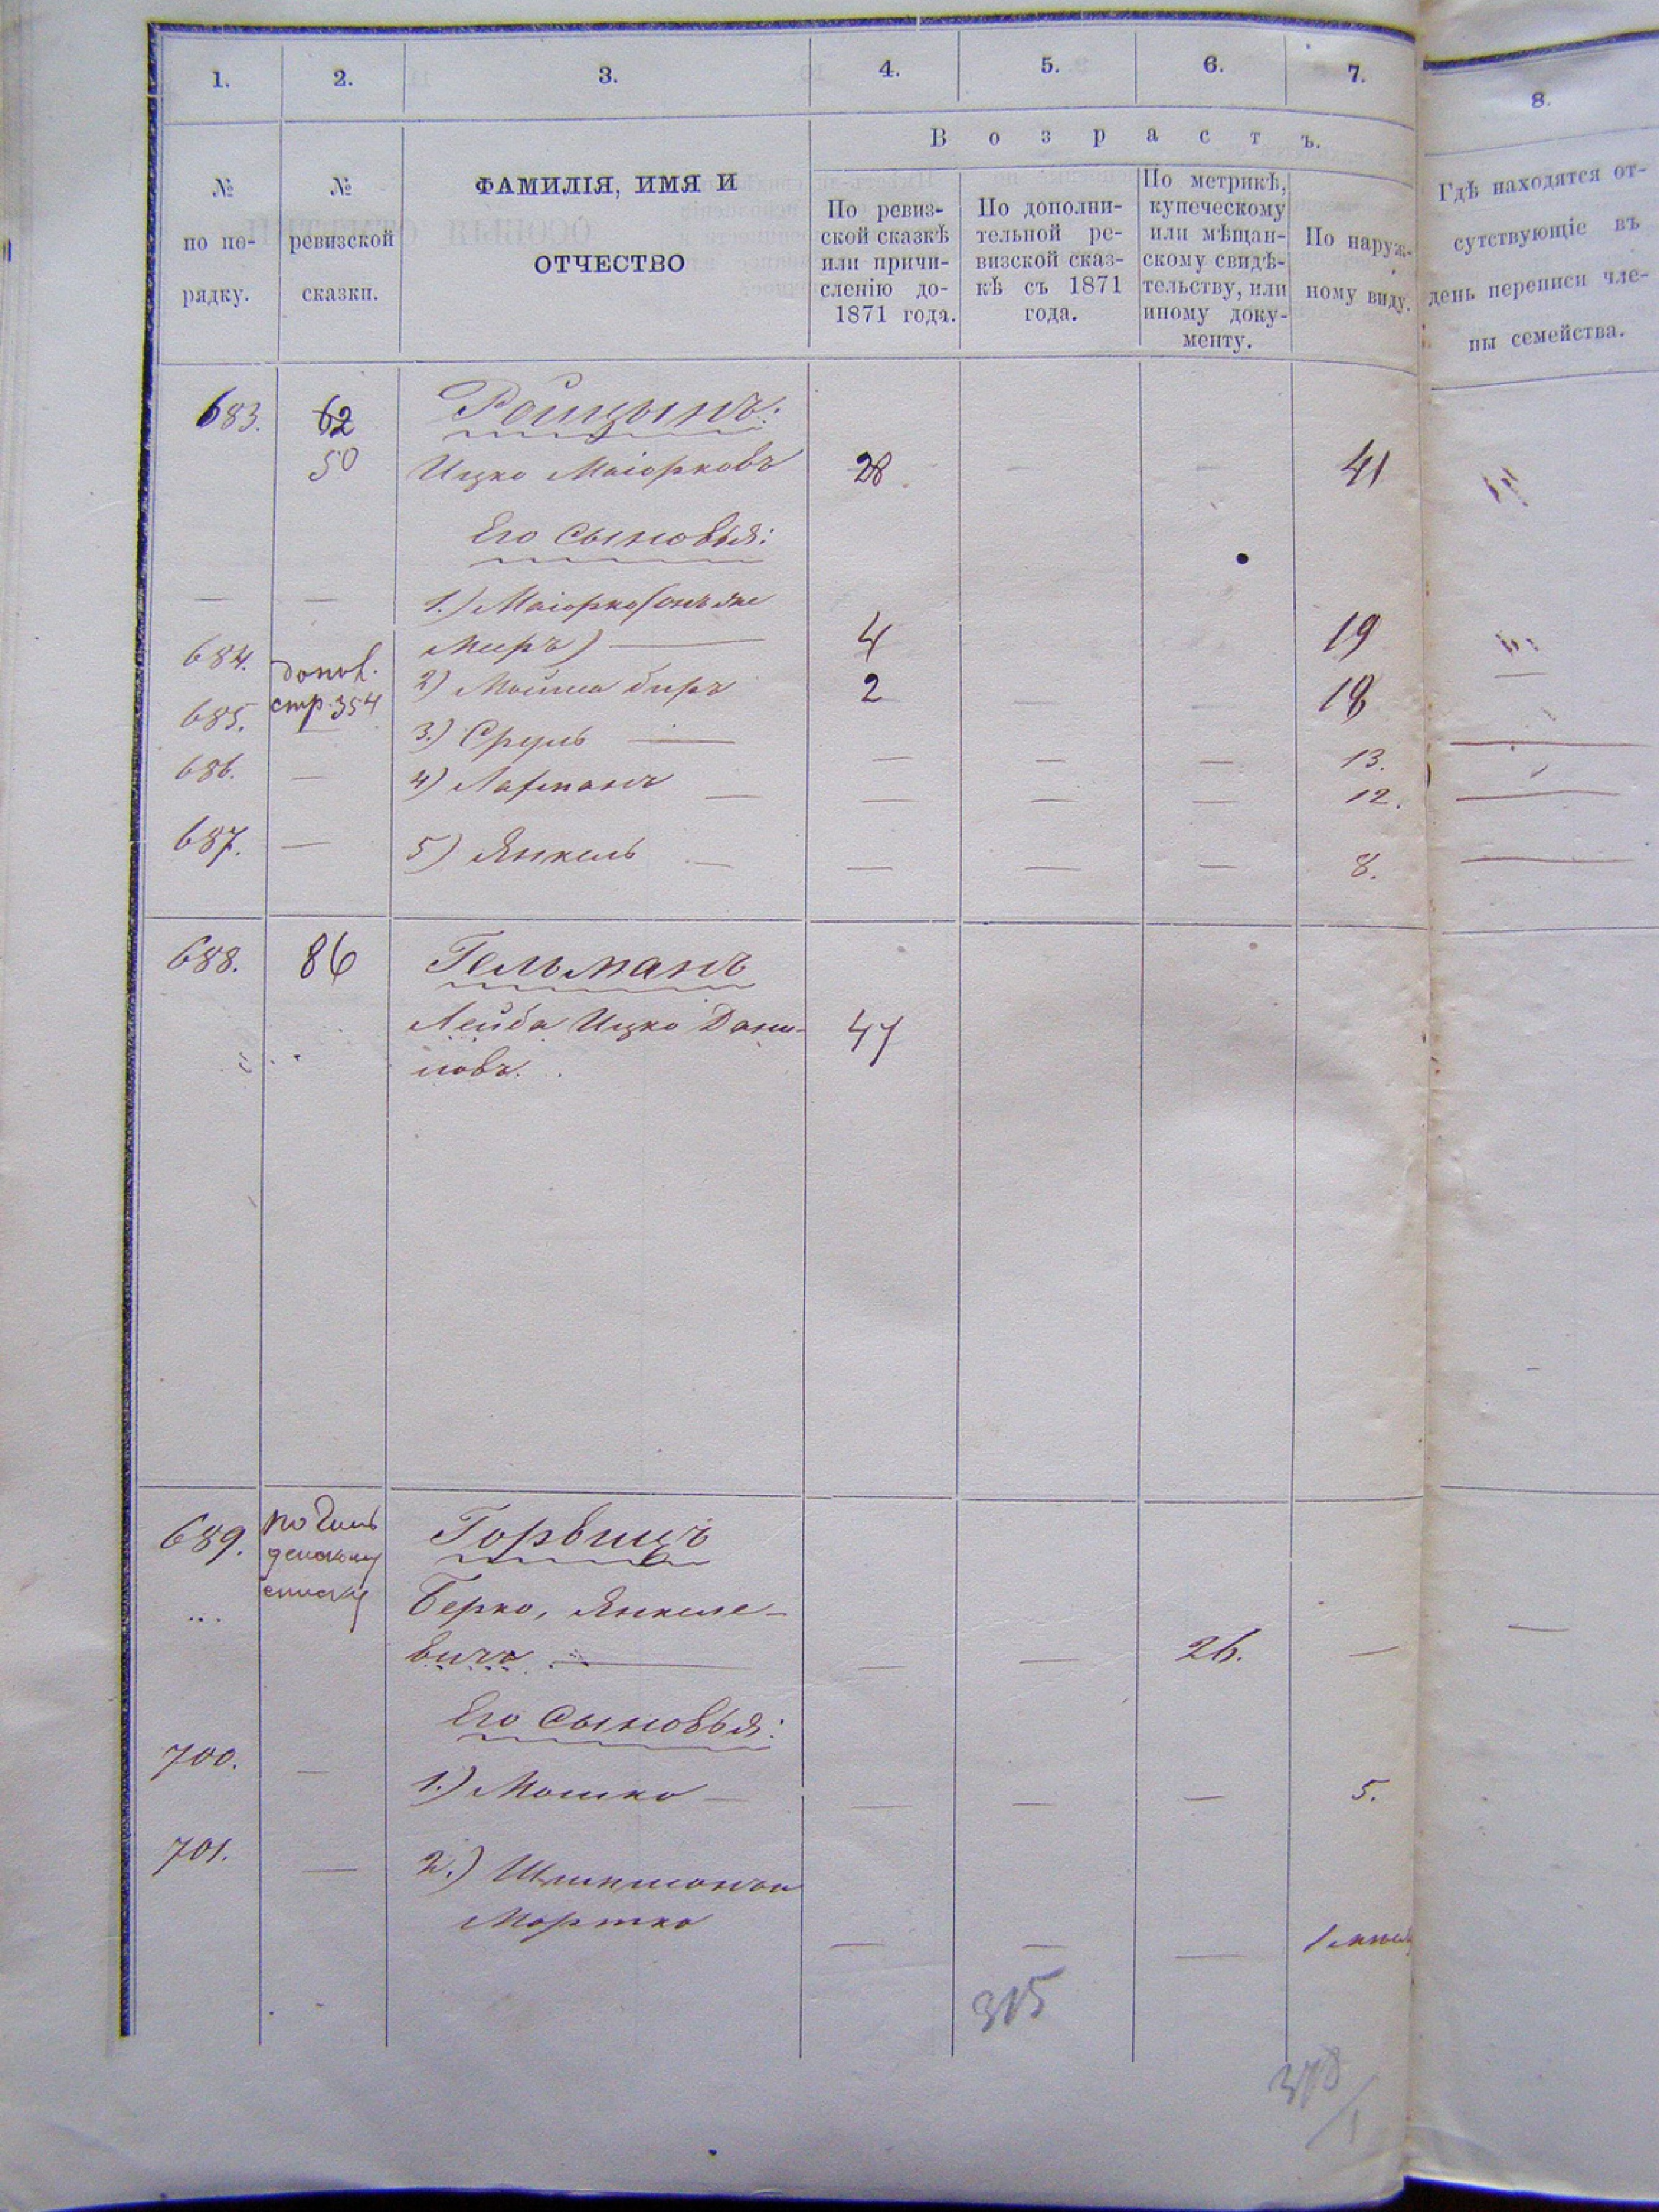 1. 2. 3. 4. 5. 6. 7. 8.
№ по по-
рядку.
№
ревизской
сказки.
ФАМИЛІЯ, ИМЯ И
ОТЧЕСТВО
Возрастъ.
По ревиз-
ской сказкѣ
или причи-
сленію до-
1871 года.
По дополни-
тельной ре-
визской сказ-
кѣ съ 1871
года.
По метрикѣ,
купеческому
или мѣщан-
скому свидѣ-
тельству, или
иному доку-
менту.
По наруж-
ному виду.
Гдѣ находятся от-
сутствующіе въ
день переписи чле-
ны семейства.
683. 62 Ройцынъ:
50 Ицко Маіорковъ 28 41
Его сыновья:
— — 1.) Маіорко (онъ же
684. Меръ) — 4 19
допол. 2) Мойша биръ 2 18
685. стр. 354 3.) Сруль — — — — 13.
686. — 4) — — — — 12.
687. — 5) Янкель — — — — 8.
688. 86 Гельманъ
Лейба Ицко Дани- 47
ловъ.
689. Горвицъ
списку Берко, Янкеле-
вичъ — — — 26. — —
Его сыновья:
700. — 1.) Мошко — — — — 5.
701. — 2.)
Мортко — — — 1
315
318